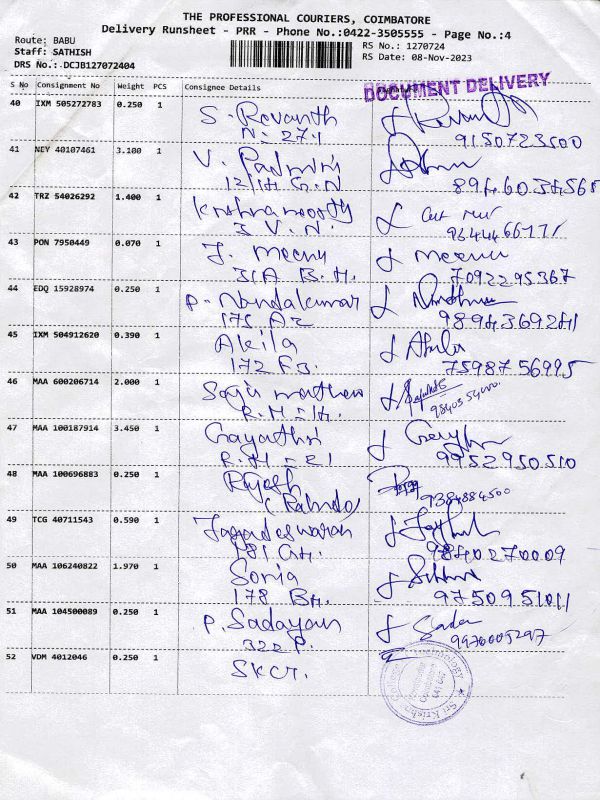 THE PROFESSIONAL COURIERS, COIMBATORE
Delivery Runsheet - PRR - Phone No.:0422-3505555 - Page No.:4
Route: BABU
RS No.: 1270724
Staff: SATHISH
RS Date: 08-Nov-2023
DRS No.:.DCJB127072404
DOCUMENT DELIVERY
S No Consignment No Weight PCS Consignee Details
40 IXM 505272783 0.250 1 S. Revanth
N: 274 9150723500
41 NEY 40107461 3.100 1 V. Padmini
12/14 G.N
42 TRZ 54026292 1.400 1 Krishnamoorthy
3 V.N.
43 PON 7950449 0.070 1 J. Meenu Meenu
31A B.H. 7092295367
44 EDQ 15928974 0.250 1 P. Nandakumar
175 A2 9894369241
45 IXM 504912620 0.390 1 Akila Akila
172 F3. 7598756995
46 MAA 600206714 2.000 1 Saju mathew
R.M = H. 9840554000
47 MAA 100187914 3.450 1 Gayathri
R.H = 21 9952950510
48 MAA 100696883 0.250 1 Rajesh
9384884500
49 TCG 40711543 0.590 1 Jagadeswaran
181 GH. 9840270009
50 MAA 106240822 1.970 1 Sonia
178 BH. 9750951011
51 MAA 104500089 0.250 1 P. Sadayan
322 P.
52 VDM 4012046 0.250 1 SKCT.